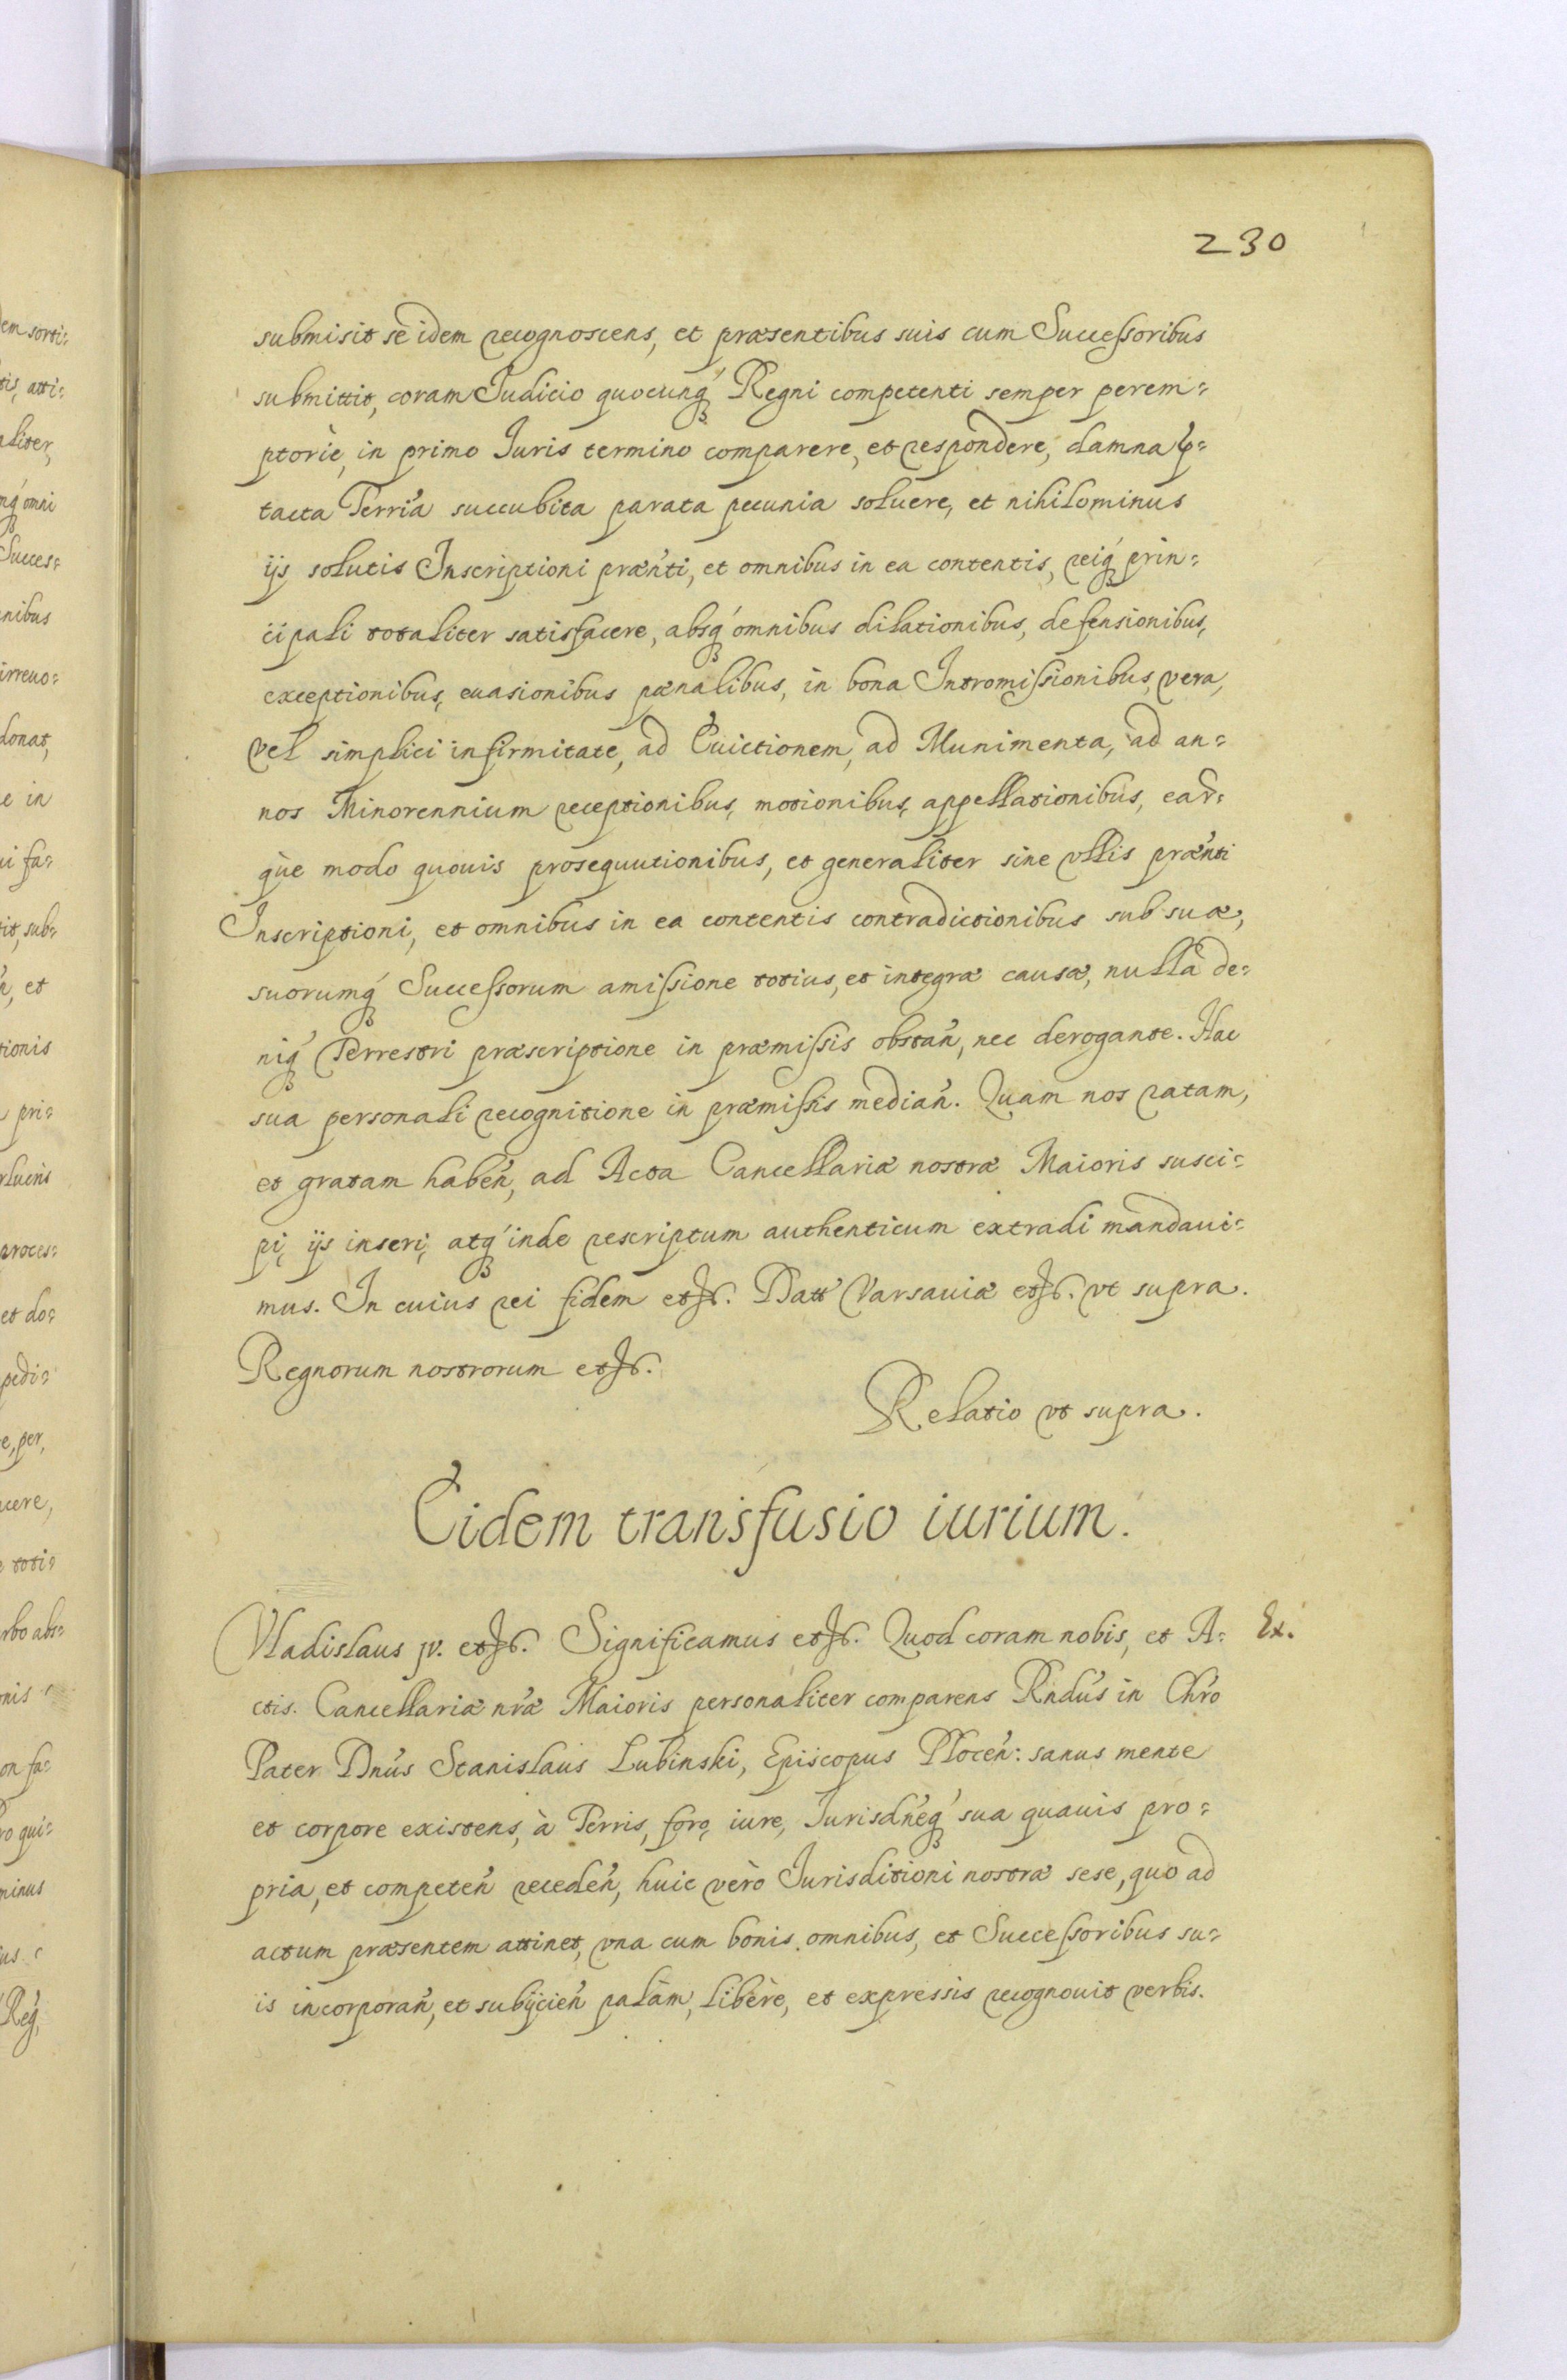 230
submisit se idem recognoscens, et præsentibus suis cum Successoribus
submittit, coram Iudicio quocunq́ Regni competenti semper perem=
ptoriè, in primo Iuris termino comparere, et respondere, damna p=
tacta Terria succubita parata pecunia soluere, et nihilominus
ijs solutis Inscriptioni prænti, et omnibus in ea contentis, reiq́ prin=
cipali totaliter satisfacere, absq́ omnibus dilationibus, defensionibus,
exceptionibus, euasionibus pœnalibus, in bona Intromissionibus, vera,
vel simplici infirmitate, ad Euictionem, ad Munimenta, ad an=
nos Minorennium receptionibus, motionibus, appellationibus, ear=
q̀ue modo quouis prosequutionibus, et generaliter sine vllis prænti
Inscriptioni, et omnibus in ea contentis contradictionibus sub suæ,
suorumq́ Successorum amissione totius, et integræ causæ, nulla de=
niq́ Terrestri præscriptione in præmissis obstan̄, nec derogante. Hac
sua personali recognitione in præmissis median̄. Quam nos ratam,
et gratam haben̄, ad Acta Cancellariæ nostræ Maioris susci=
pi, ijs inseri, atq́ inde rescriptum authenticum extradi mandaui=
mus. In cuius rei fidem etc. Datt Varsauiæ etc. vt supra.
Regnorum nostrorum etc.
Relatio vt supra.
Eidem transfusio iurium.
Vladislaus jv. etc. Significamus etc. Quod coram nobis, et A= Ex.
ctis. Cancellariæ nræ Maioris personaliter comparens Rndus in Chro
Pater Dnus Stanislaus Lubinski, Episcopus Plocen̄: sanus mente
et corpore existens, à Terris, foro, iure, Iurisdneq́ sua quauis pro=
pria, et competen̄ receden̄, huic verò Iurisditioni nostræ sese, quo ad
actum præsentem attinet, vna cum bonis omnibus, et Successoribus su=
is incorporan̄, et subijcien̄ palàm, liberè, et expressis recognouit verbis.